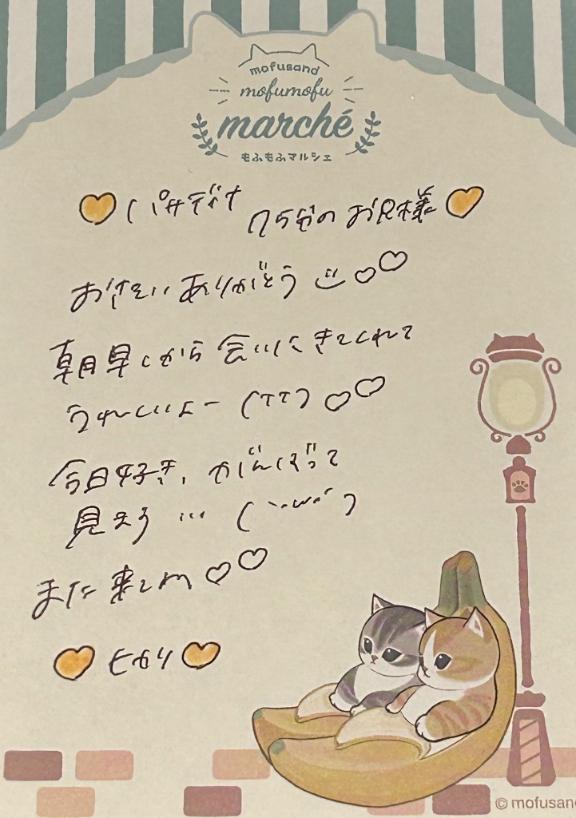 mofusand
mofumofu
marché
もふもふマルシェ
パサディナ 75分のお兄様
おさそいありがとう
朝早くから会いにきてくれて
うれしいよー (TT)
今日好き、がんばって
見よう … (`・ω・´)
また来てね
ヒカリ
© mofusand